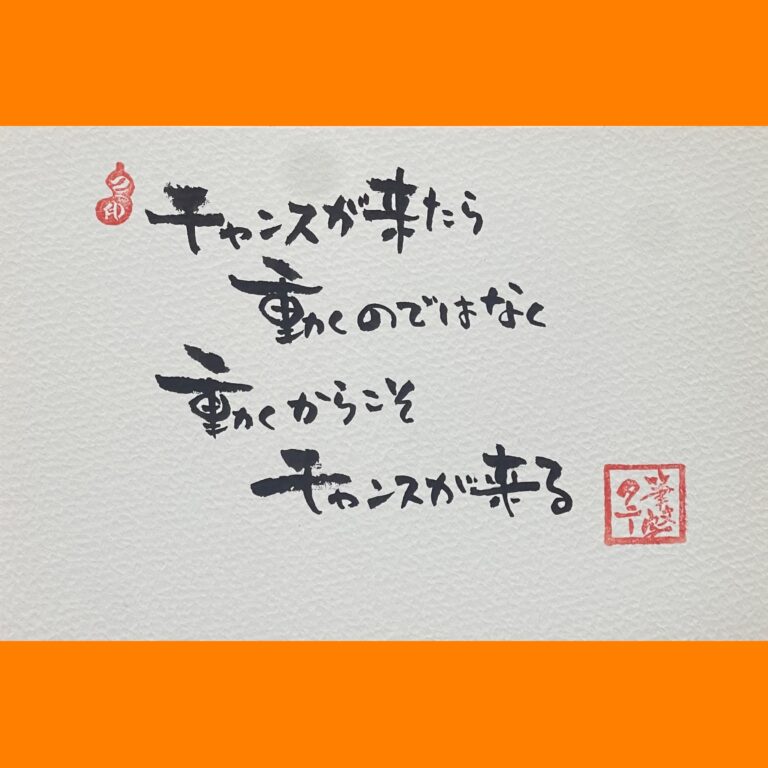 チャンスが来たら
動くのではなく
動くからこそ
チャンスが来る